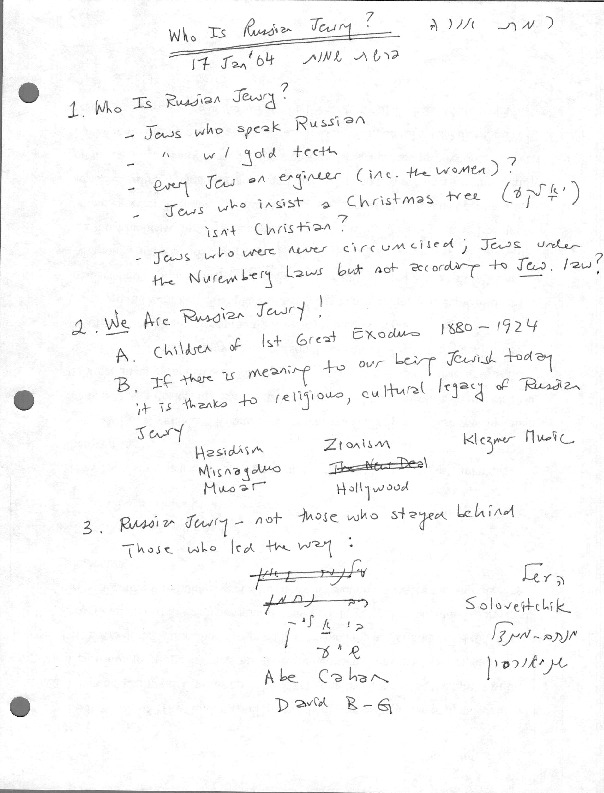 Who Is Russian Jewry? רמת אורה
17 Jan '04 פרשת שמות
1. Who Is Russian Jewry?
- Jews who speak Russian
- " w/ gold teeth
- every Jew an engineer (inc. the women)?
- Jews who insist a Christmas tree
isn't Christian?
- Jews who were never circumcised; Jews under
the Nuremberg Laws but not according to Jew. law?
2. We Are Russian Jewry!
A. Children of 1st Great Exodus 1880-1924
B. If there is meaning to our being Jewish today
it is thanks to religious, cultural legacy of Russian
Jewry
Hasidism Zionism Klezmer Music
Misnagdus The New Deal
Musar Hollywood
3. Russian Jewry - not those who stayed behind
Those who led the way:
Soloveitchik
מנחם-מענדל
Abe Cahan
David B-G